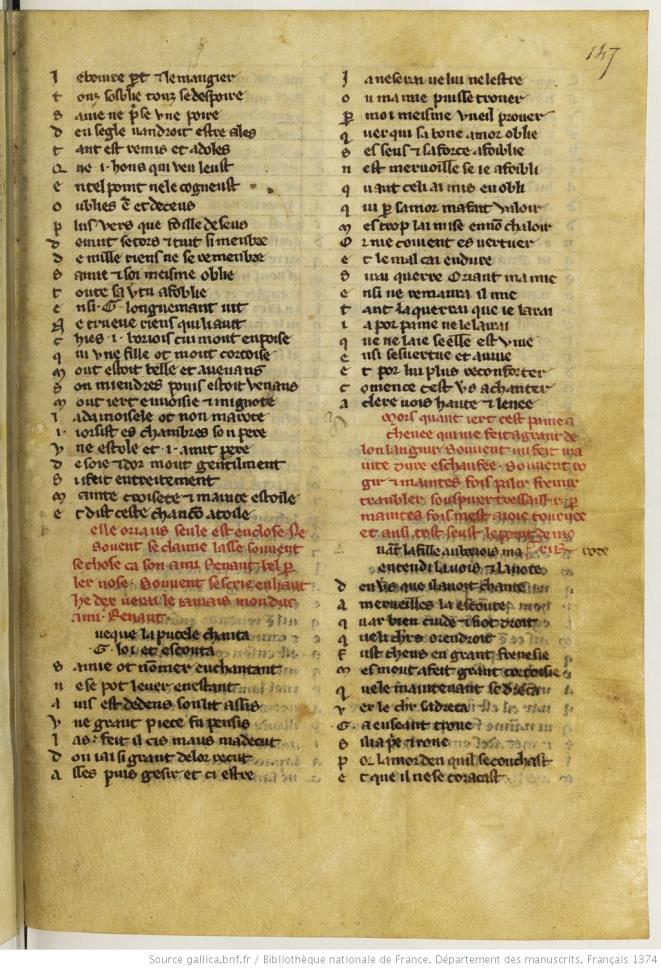 147
l e boivre pert & le mangier
t ouz sosblie touz se despoire
s amie ne prise vne poire
d eu segle uaudroit estre siles
t ant est remis et adoles
Q ne .i. hons qui ueu leust
e n tel point ne le cogneust
o ublies est et deceus
p lus vers que foille de seus
d euint se cors & tuit si menbre
d e mille riens ne se remenbre
s amie & soi meisme oblie
t oute sa vertu afoblie
e nsi .G. longuemant uit
N e trueue riens qui li anit
c hies .i. boriois cui mout enpoise
q ui vne fille ot mout cortoise
m out estoit belle et auenans
s on miendres prouis estoit venans
m out iert enuoisie & mignote
l a damoisele ot non marote
i . ior sist es chambres son pere
v ne estole et .i. amit pere
d e soie & d or mout gentilment
s i feit entreitement
m ainte croisete & mainte estoile
e t dist ceste chancon a toile
elle oriaus seule est enclose Se
souent se claime lasse souuent
se chose ca son ami Renaut bel per
ler nose. Souuent sescrie en haut
he dex uerai le iamais mon duc
ami. Renaut.
ueque la pucele chanta
.G. loi et escouta
s amie ot nommer en chantant
n e se pot leuer en estant
a uis est dedens son lit assis
v ne grant piece fu pensis
l as. feit il cis maus ma decut
d ou iai si grant dolor recut
a lles puis gesir et ci estre
J a ne serai ue lui ne lestre
o u mamie puisse trouer
p moi meisme vueil prouer
q uer qui sa bone amor oblie
s es sens & sa force afoiblie
n est merueille se ie afoibli
q uant celi ai mis en obli
q ui per samor ma fait valoir
m es trop lai mise en non chaloir
O r me couient esvertuer
e t le mal cai endure
s urai querre Oriant mamie
e nsi ne remaura il mie
t ant la querrai que ie larai
i a por paine ne le lairai
q ue ne laie se elle est viue
e nsi sesuertue et auiue
e t por lui plus reconforter
c omence cest vers a chanter
a clere uois haute & lence
mors quant iert cest paine a
cheuee qui me feit a grant de
lor languir Souuent mi feit ma
uite dure eschaufee. Souuent ro
gir & maintes fois palir fremir
trambler souspirer tressaillir per
maintes fois mest a ioie tornee
uant la fille au borois ma
entendi la uois & la note
d eu vers que il auoit chante
a merueilles la escoute
q uar bien cuide & si ot droit
q ue li chrs orendroit
F ust cheus en grant frenesie
m es mout a feit grant cortoisie
q ue le maintenant se dreca
v er le chr sadreca
.G. a en seant troue
s il la pe & roue
p or lamor deu quil se couchast
e t que il ne se coracast
Source gallica.bnf.fr / Bibliothèque nationale de France. Département des manuscrits. Français 1374